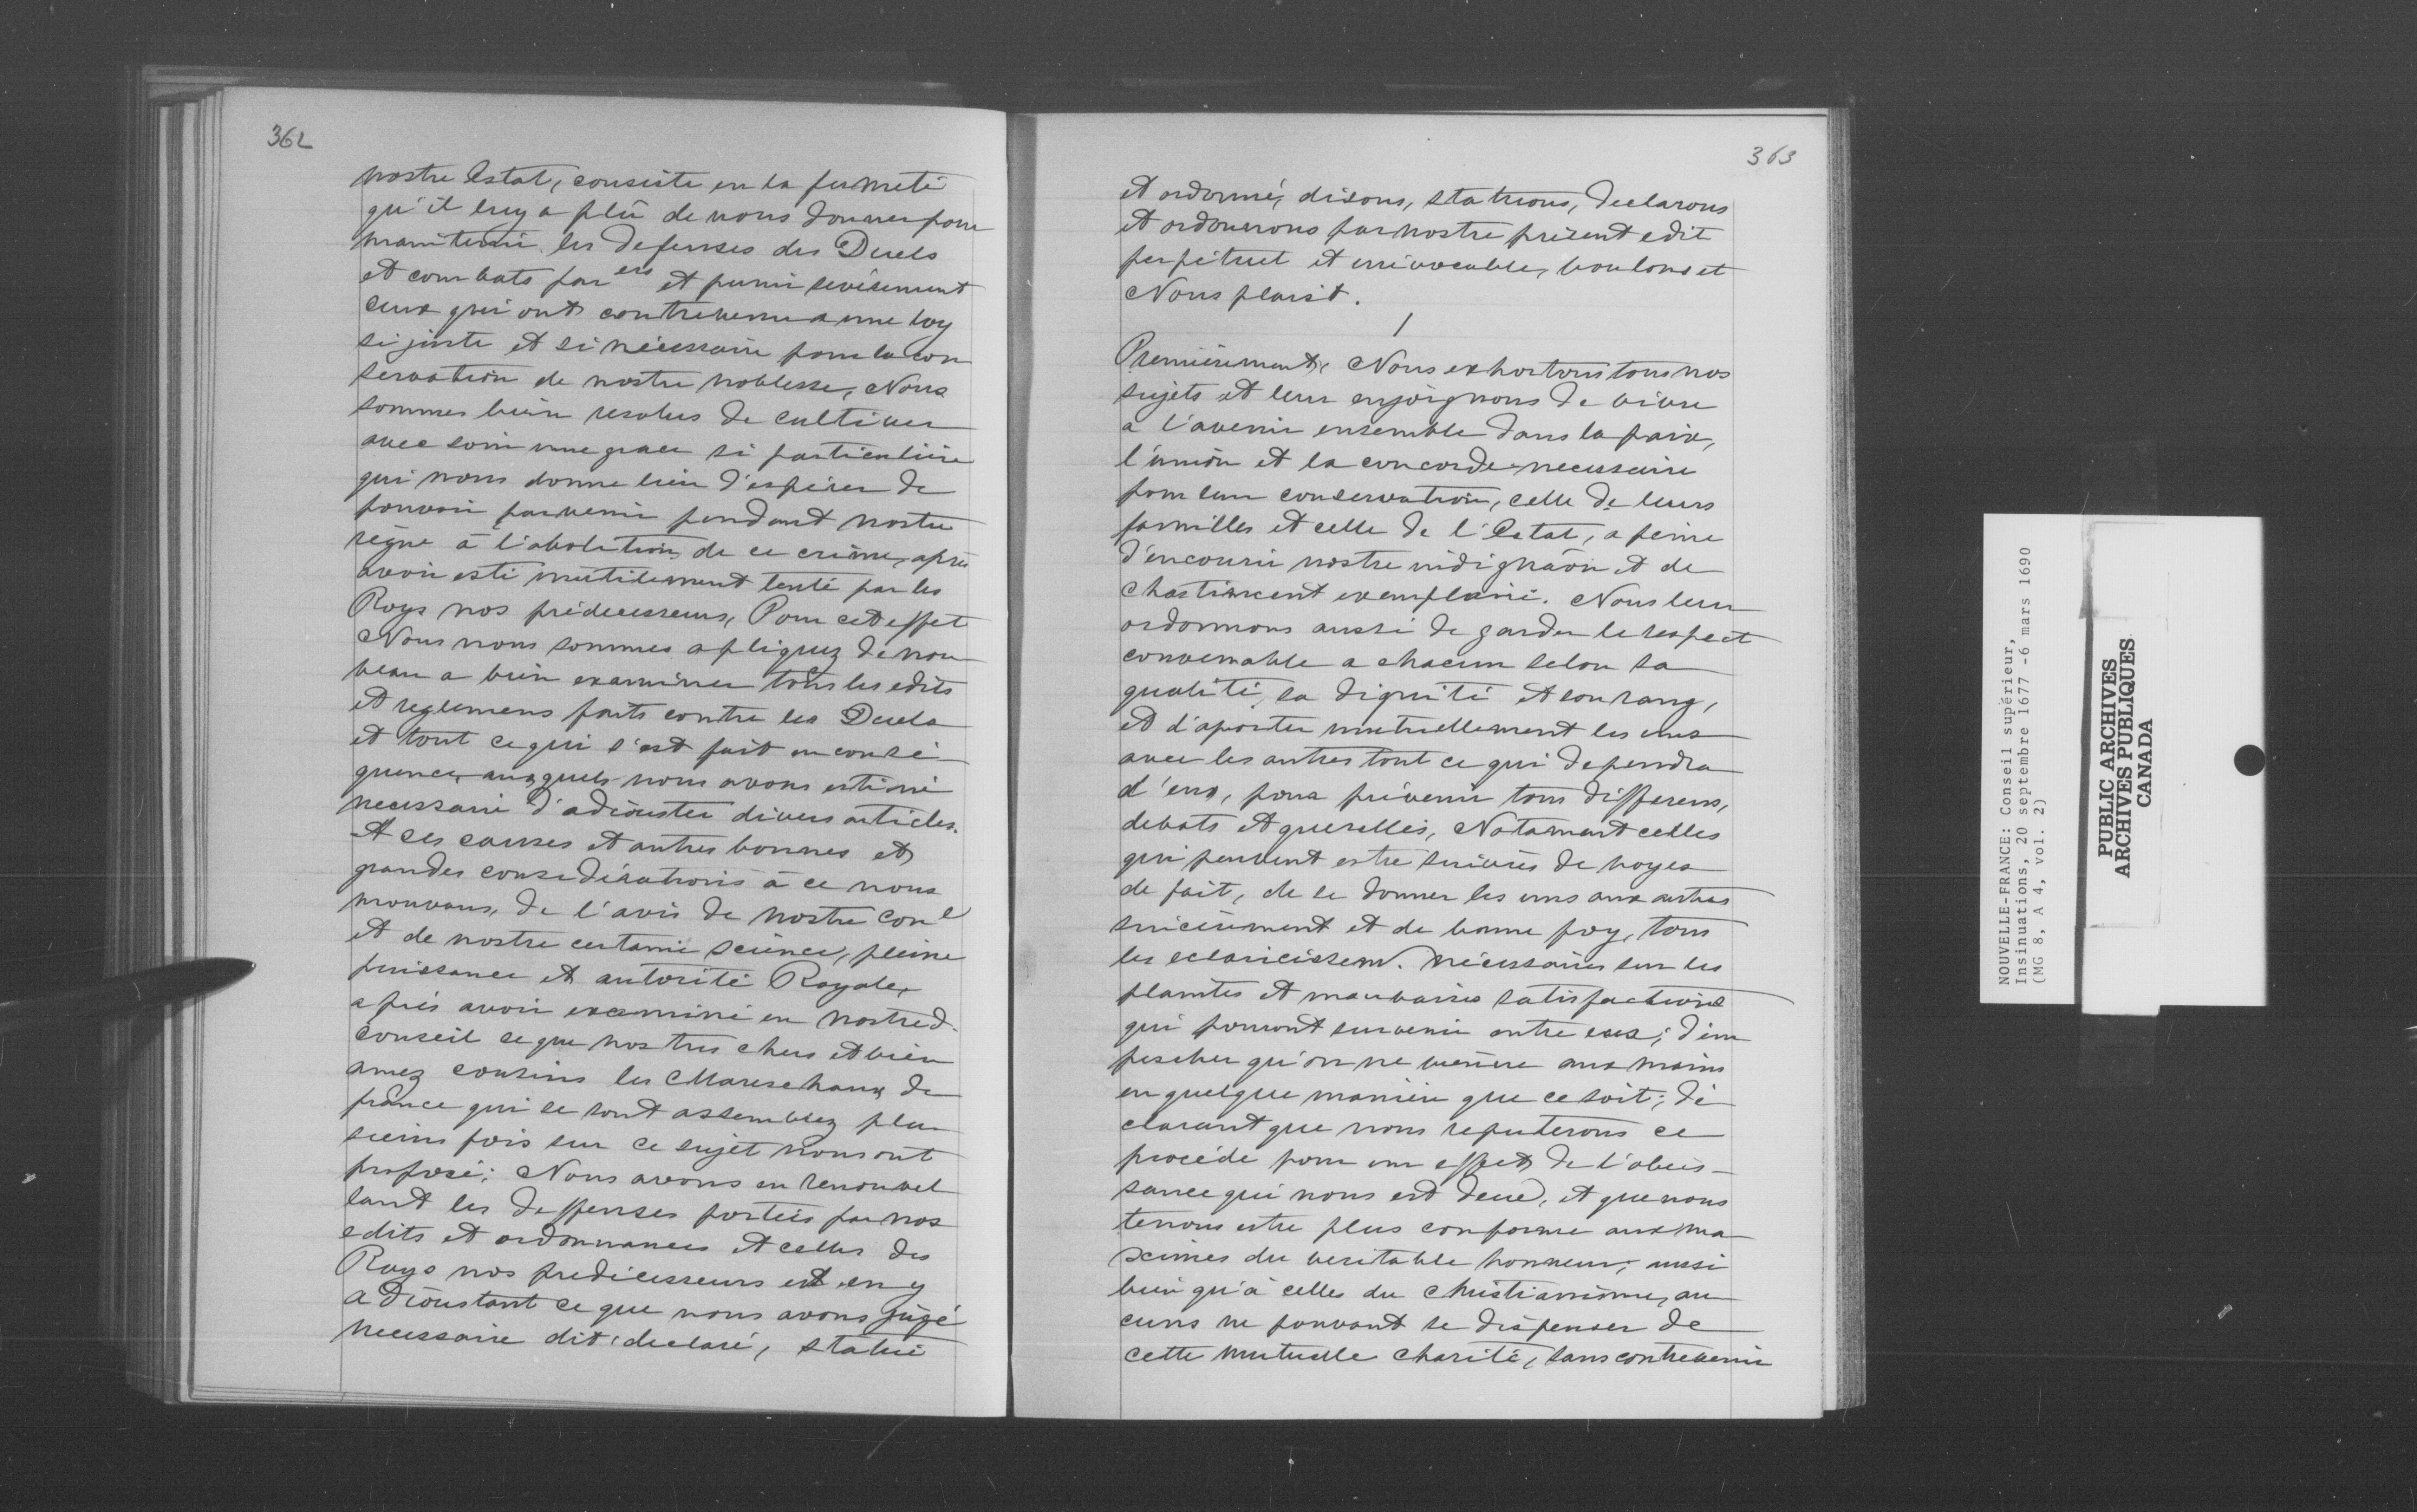 362
nostre Estat, consiste en la fermeté
qu'il luy a plû de nous donner pour
maintenir les defenses des Duels
et combats par ers et punir sevérement
ceux qui ont contrevenu a une loy
si juste et si nécessaire pour la con
servation de nostre noblesse, Nous
sommes bien resolus de cultiver
avec soin une grace si particulière
qui nous donne lieu d'espérer de
pouvoir parvenir pendant nostre
règne à l'abolition de ce crime, après
avoir esté inutilement tenté par les
Roys nos prédecesseurs, Pour cet effet
Nous nous sommes apliquez de nou
veau a bien examiner tous les edits
et reglemens faits contre les Duels
et tout ce qui s'est fait en consé
quence, auxquels nous avons estimé
necessaire d'adiouster divers articles.
A ces causes et autres bonnes et
grandes considérations à ce nous
mouvans, de l'avis de nostre con l
et de nostre certaine science, pleine
puissance et autorité Royale,
après avoir examiné en nostred.
conseil ce que nos tres chers et bien
amez cousins les Mareschaux de
france qui se sont assemblez plu
sieurs fois sur ce sujet nous ont
proposé; Nous avons en renouvel
lant les deffenses portées par nos
edits et ordonnances et celles des
Roys nos predécesseurs et en y
adioustant ce que nous avons jugé
necessaire dit, declaré, statué
363
et ordonné, disons, statuons, declarons
et ordonnons par nostre présent edit
perpétuel et irrévocable, voulons et
Nous plaist.
1
Premièrement, Nous exhortons tous nos
sujets et leur enjoignons de vivre
a l'avenir ensemble dans la paix,
l'union et la concorde necessaire
pour leur conservation, celle de leurs
familles et celle de l'Estat, a peine
d'encourir nostre indignaôn et de
chastiment exemplaire. Nous leur
ordonnons aussi de garder le respect
convenable a chacun selon sa
qualité, sa dignité et son rang,
et d'aporter mutuellement les uns
avec les autres tout ce qui dependra
d'eux, pour prévenir tous differens,
debats et querelles, Notament celles
qui peuvent estre suivies de voyes
de fait, de se donner les uns aux autres
sincèrement et de bonne foy, tous
les eclaricissem. nécessaires sur les
plaintes et mauvaises satisfactions
qui pouront survenir entre eux; d'em
pescher qu'on ne vienne aux mains
en quelque manière que ce soit; dé
clarant que nous reputerons ce
procédé pour un effet de l'obéis-
sance qui nous est deue, et que nous
tenons estre plus conforme aux ma
ximes du veritable honneur, aussi
bien qu'à celles du christianisme, au
cuns ne pouvant se dispenser de
cette mutuelle charité, sans contrevenir
NOUVELLE-FRANCE: Conseil supérieur,
Insinuations, 20 septembre 1677 -6 mars 1690
(MG 8, A 4, vol. 2)
PUBLIC ARCHIVES
ARCHIVES PUBLIQUES
CANADA